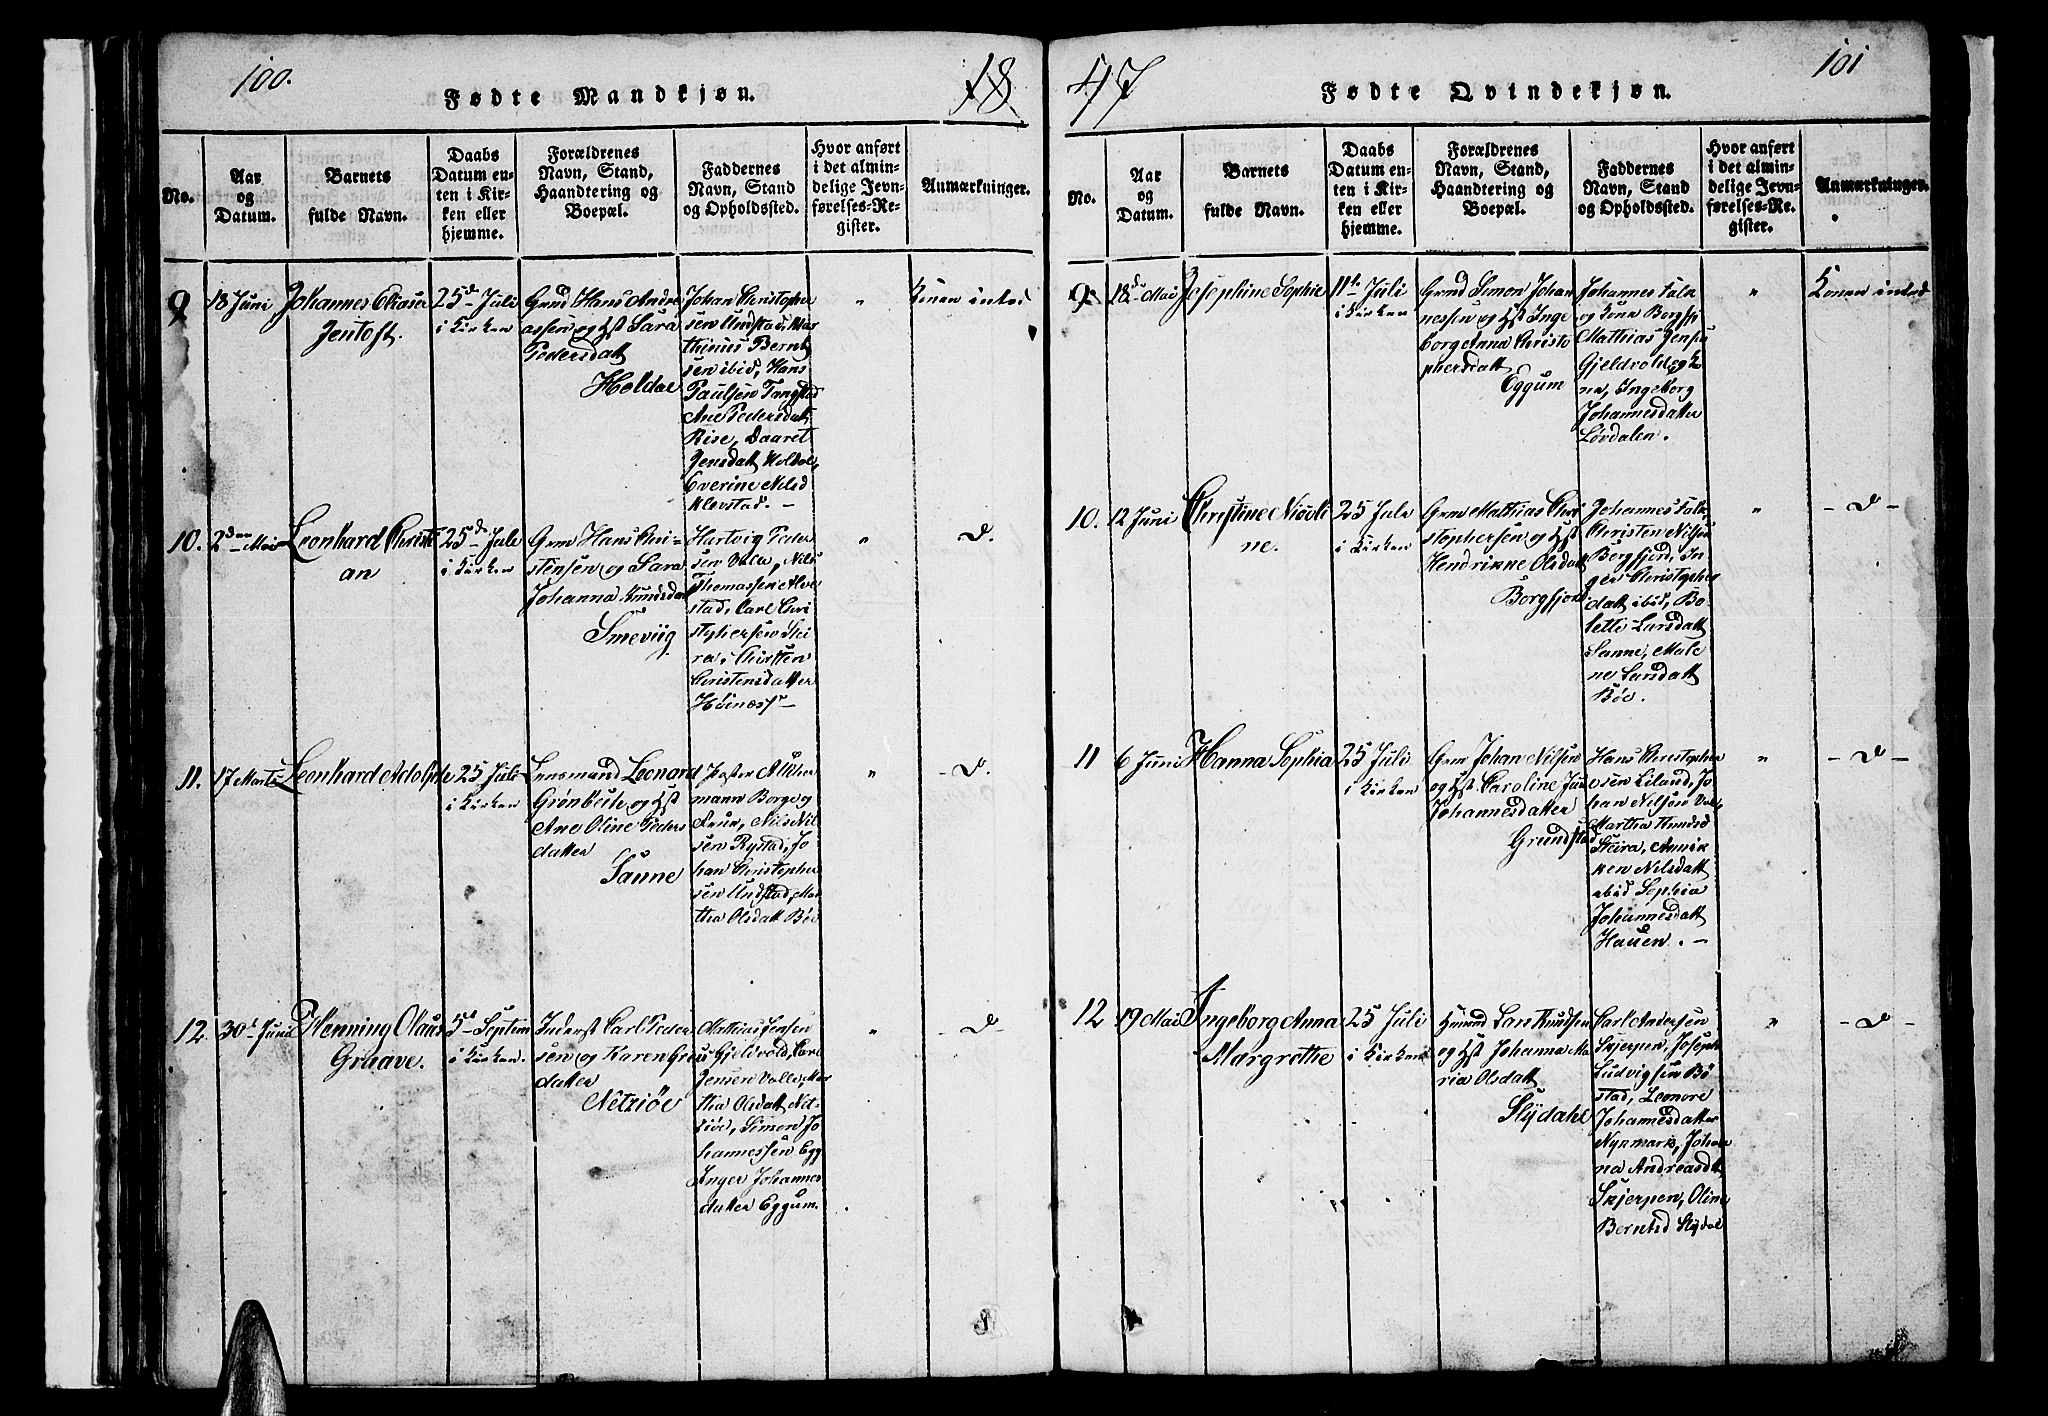 100.
18
Fødte Mandkjøn.
No.
Aar
og
Datum.
Barnets
fulde Navn.
Daabs
Datum en-
ten i Kir-
ken eller
hjemme.
Forældrenes
Navn, Stand,
Haandtering og
Boepæl.
Faddernes
Navn, Stand
og Opholdssted.
Hvor anført
i det almin-
delige Jevn-
førelses-Re-
gister.
Anmærkninger.
9
18 Juni
Johannes
Jentoft.
25d Juli
i Kirken
Gmd Hans Andre
assen og Hst Sara
Pedersdatt
Holdal
Johan Christopher
sen Undstad, Mar
thinus Bernt
sen ibid, Hans
Paulsen Tangstad
Ane Pedersdatt
Rise, Daaret
Jensdatt Holdal,
Everine Nilsd
Klevstad. -
"
Konen introd
10.
2den Mai
Leonhard Christi
an
25de Juli
i Kirken
Gmd Hans Chri-
stensen og Sara
Johanna Knudsdat
Smeviig
Hartvig Peder
sen Valle, Nils
Thomassen Alve
stad, Carl Chri
stophersen Stei
ra, Chirsten
Christensdatter
Høinæss -
"
D.
11.
17 Marts
Leonhard Adolph
25 Juli
i Kirken
Lensmand Leonard
Grønbeck og Hst
Ane Oline Peders
datter
Sanne
Pastor
mann Borge og
Frue, Nils Nil
sen Rystad, Jo
han Christopher
sen Undstad, Mar
tha Olsdatt Bøe
"
- D.
12.
30d Juni
Henning Olaus
Graave.
5d Septem
i Kirken.
Inderst Carl Peder
sen og Karen Greis
datter
Netziøe
Mathias Jensen
Gjeldvold, Carl
Jensen Valle, Mar
tha Olsdatt Net-
siøe, Simon Jo
hannessen Egg
Inger Johannes
datter Eggum.
"
- D -
47
101
Fødte Qvindekjøn.
No.
Aar
og
Datum.
Barnets
fulde Navn.
Daabs
Datum en-
ten i Kir-
ken eller
hjemme.
Forældrenes
Navn, Stand,
Haandtering og
Boepæl.
Faddernes
Navn, Stand
og Opholdssted.
Hvor anført
i det almin-
delige Jevn-
førelses-Re-
gister.
Anmærkninger.
9.
18d Mai
Josephine Sophie
11te Juli
i Kirken
Gmd Simon Johan
nessen og Hst Inge
borg Anna Christo
phersdatt
Eggum
Johannes Falk
og Kone Borgfj
Mathias Jensen
Gjeldvold og Ko
ne, Ingeborg
Johannesdatter
Løvdalen.
"
Konen introd
10.
12 Juni
Christine Nicoli
ne.
25 Juli
i Kirken
Gmd Mathias Chri
stophersen og Hst
Hendrikke Olsdatt
Borgfjord
Johannes Falk
Christen Nilsen
Borgfjord, In
ger Christophers
datt ibid, Bo-
lette Larsdatt
Sanne, Male
ne Larsdatt
Bøe.
"
- D -
11
6 Juni
Hanna Sophia
25 Juli
i Kirken
Gmd Johan Nilsen
og Hst Caroline
Johannesdatter
Grundstad
Hans Christopher
sen Liland, Jo
han Nilsen Valle,
Martha Knudsd
Steira, Annik
ken Nilsdatt
ibid Sophia
Johannesdatt
Hauen. -
"
- D -
12
19 Mai
Ingeborg Anna
Margrethe
25 Juli
i Kirken
Hmand Lars Knudsen
og Hst Johanna Ma
ria Olsdatt
Slydahl
Karl Andersen
Skjerpen, Joseph
Ludvigsen Bø
stad, Leonore
Johannesdatter
Nykmark, Johan
na Andreasdt
Skjerpen, Oline
Berntsd Slydal
"
- D -